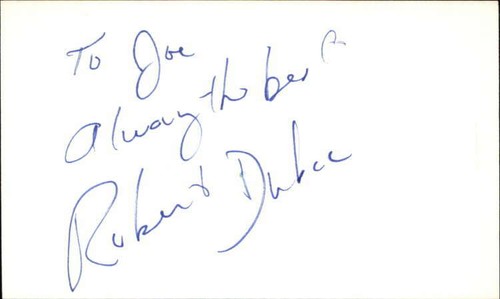 To Joe
Always the best
Robert